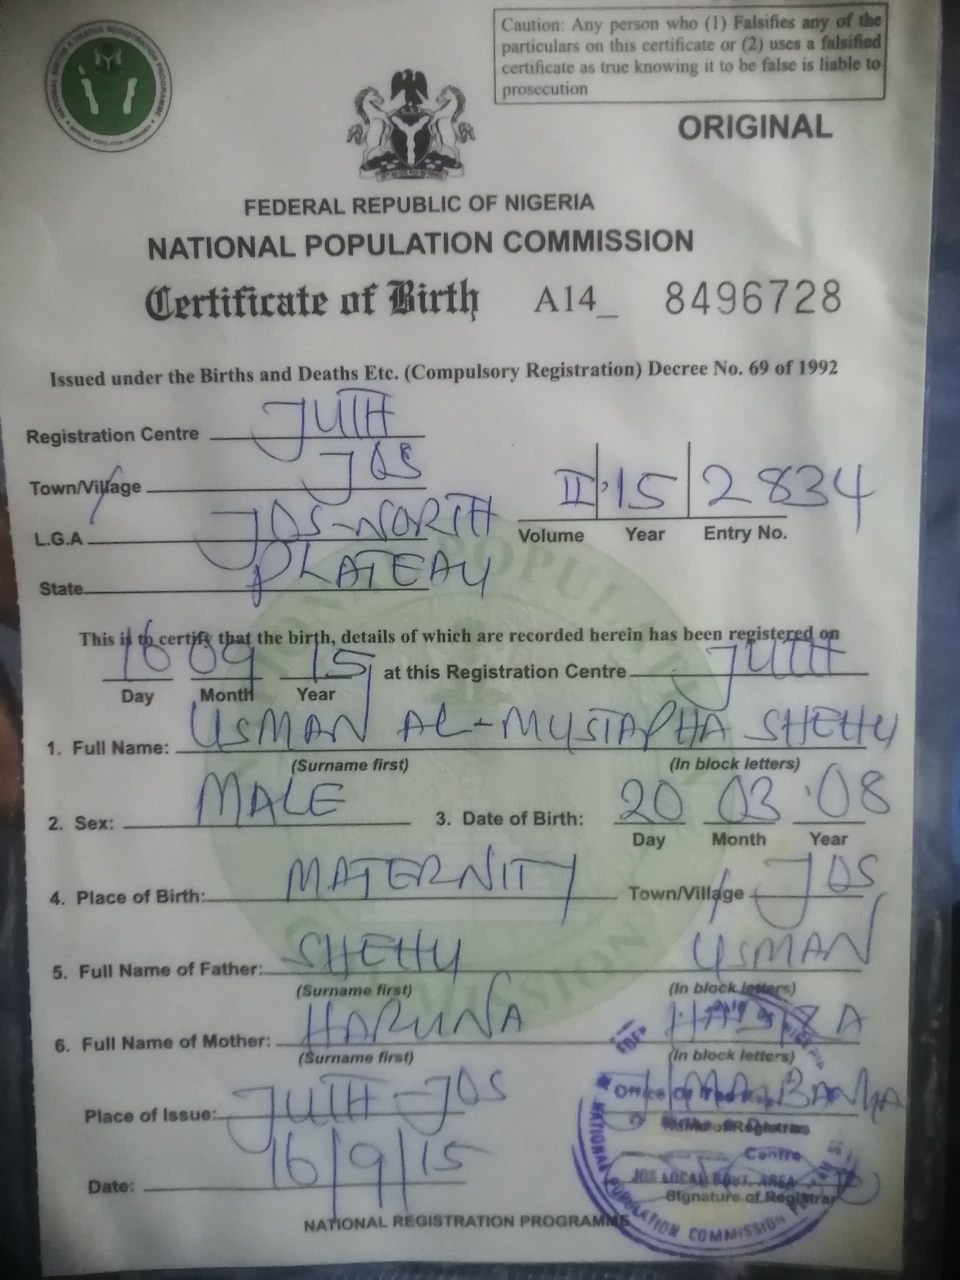 NATIONAL BIRTHS & DEATHS REGISTRATION PROGRAMME
NATIONAL POPULATION COMMISSION
Caution: Any person who (1) Falsifies any of the
particulars on this certificate or (2) uses a falsified
certificate as true knowing it to be false is liable to
prosecution
ORIGINAL
FEDERAL REPUBLIC OF NIGERIA
NATIONAL POPULATION COMMISSION
Certificate of Birth A14_ 8496728
Issued under the Births and Deaths Etc. (Compulsory Registration) Decree No. 69 of 1992
Registration Centre JUTH
Town/Village JOS
II 15 2834
L.G.A JOS-NORTH
Volume Year Entry No.
State PLATEAU
This is to certify that the birth, details of which are recorded herein has been registered on
16 09 15 at this Registration Centre JUTH
Day Month Year
1. Full Name: USMAN AL-MUSTAPHA SHEHU
(Surname first) (In block letters)
2. Sex: MALE 3. Date of Birth: 20 03 08
Day Month Year
4. Place of Birth: MATERNITY Town/Village JOS
5. Full Name of Father: SHEHU USMAN
(Surname first) (In block letters)
6. Full Name of Mother: HARUNA
(Surname first) (In block letters)
Place of Issue: JUTH-JOS
Name of Registrar
Centre
JOS LOCAL GOVT. AREA
Date: 16/9/15
Signature of Registrar
NATIONAL POPULATION COMMISSION
NATIONAL REGISTRATION PROGRAMME